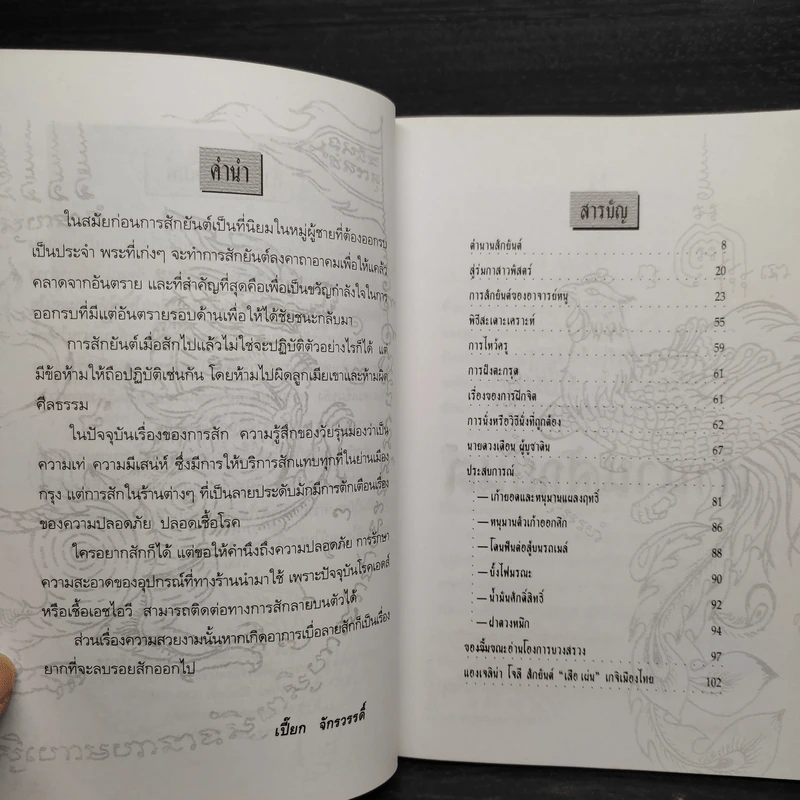 คำนำ
ในสมัยก่อนการสักยันต์เป็นที่นิยมในหมู่ผู้ชายที่ต้องออกรบ
เป็นประจำ พระที่เก่งๆ จะทำการสักยันต์ลงคาถาอาคมเพื่อให้แคล้ว
คลาดจากอันตราย และที่สำคัญที่สุดคือเพื่อเป็นขวัญกำลังใจในการ
ออกรบที่มีแต่อันตรายรอบด้านเพื่อให้ได้ชัยชนะกลับมา
การสักยันต์เมื่อสักไปแล้วไม่ใช่จะปฏิบัติตัวอย่างไรก็ได้ แต่
มีข้อห้ามให้ถือปฏิบัติเช่นกัน โดยห้ามไปผิดลูกเมียเขาและห้ามผิด
ศีลธรรม
ในปัจจุบันเรื่องของการสัก ความรู้สึกของวัยรุ่นมองว่าเป็น
ความเท่ ความมีเสน่ห์ ซึ่งมีการให้บริการสักแทบทุกที่ในย่านเมือง
กรุง แต่การสักในร้านต่างๆ ที่เป็นลายประดับมักมีการตักเตือนเรื่อง
ของความปลอดภัย ปลอดเชื้อโรค
ใครอยากสักก็ได้ แต่ขอให้คำนึงถึงความปลอดภัย การรักษา
ความสะอาดของอุปกรณ์ที่ทางร้านนำมาใช้ เพราะปัจจุบันโรคเอดส์
หรือเชื้อเอชไอวี สามารถติดต่อทางการสักลายบนตัวได้
ส่วนเรื่องความสวยงามนั้นหากเกิดอาการเบื่อลายสักก็เป็นเรื่อง
ยากที่จะลบรอยสักออกไป
เปี๊ยก จักรวรรดิ์
สารบัญ
ตำนานสักยันต์ 8
สู่ร่มกาสาวพัสตร์ 20
การสักยันต์ของอาจารย์หนู 23
พิธีสะเดาะเคราะห์ 55
การไหว้ครู 59
การฝังตะกรุด 61
เรื่องของการฝึกจิต 61
การนั่งหรือวิธีนั่งที่ถูกต้อง 62
นายดวงเดือน ผู้บูชาดิน 67
ประสบการณ์
— เก้ายอดและหนุมานแผลงฤทธิ์ 81
— หนุมานตัวเก้าออกศึก 86
— โดนฟันต่อสู้บนรถเมล์ 88
— บั้งไฟมรณะ 90
— น้ำมันศักดิ์สิทธิ์ 92
— ฝ่าดวงหมึก 94
จองฉิ่มขณะอ่านโองการบวงสรวง 97
แองเจลิน่า โจลี สักยันต์ “เสือ เผ่น” เกจิเมืองไทย 102